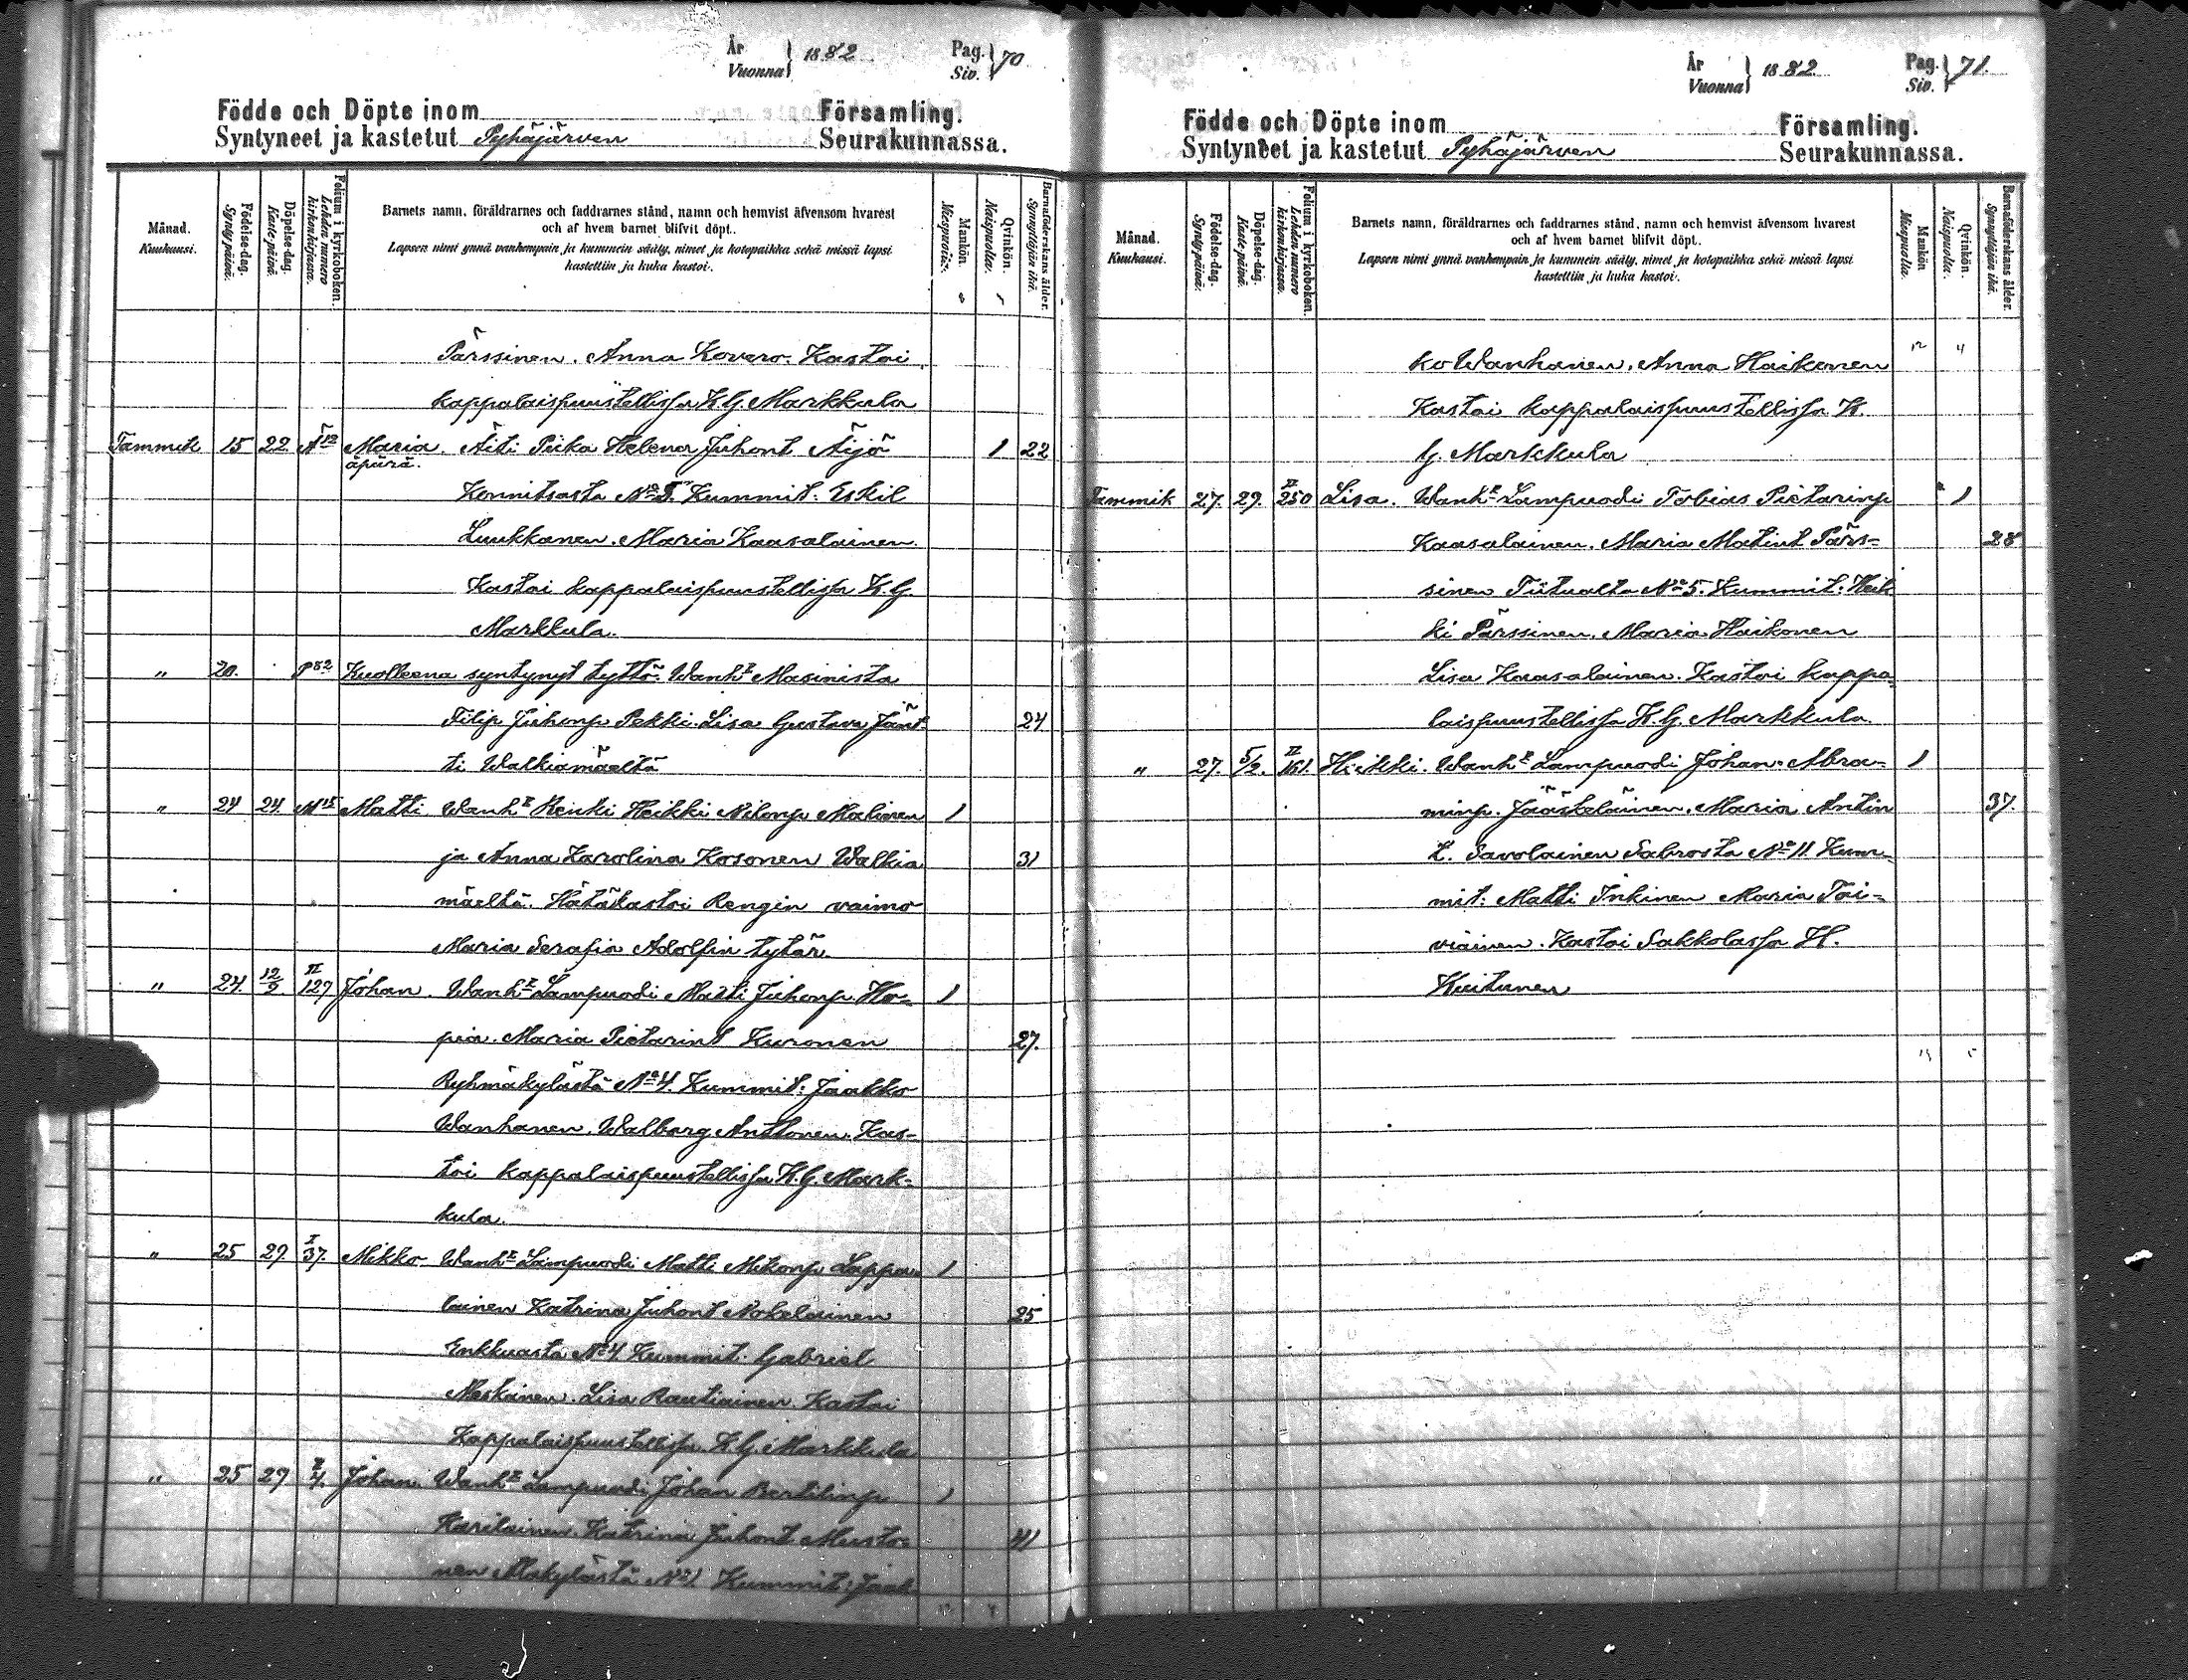 År Vuonna } 1882 Pag. Siv. } 70
Födde och Döpte inom Församling.
Syntyneet ja kastetut Pyhäjärven Seurakunnassa.
Månad. Kuukausi.
Födelse-dag. Syntypäivä.
Döpelse-dag. Kaste-päivä.
Folium i kyrkoboken. Lehden numero kirkonkirjassa.
Barnets namn, föräldrarnes och faddrarnes stånd, namn och hemvist äfvensom hvarest
och af hvem barnet blifvit döpt.
Lapsen nimi ynnä vanhempain ja kummein sääty, nimet ja kotopaikka sekä missä lapsi
kastettiin ja kuka kastoi.
Mankön. Miespuolia.
Qvinkön. Naispuolia.
Barnaföderskans ålder. Synnyttäjän ikä.
Pärssinen. Anna Kovero. Kastoi
kappalaispuustellissa K G Markkula
Tammik 15 22. Maria. Äiti Piika Helena Juhont Äijö 1 22
äpärä.
Konnitsasta No 5. Kummit: Eskil
Luukkanen. Maria Kaasalainen.
Kastoi kappalaispuustellissa K. G.
Markkula.
" 20. Kuolleena syntynyt tyttö. Wanht Masinista
Filip Juhonp. Pekki. Lisa Gustava Jänt- 24
ti Walkiamäeltä
" 24 24. Matti Wanht Renki Heikki Nilonp Malinen 1
ja Anna Karolina Kosonen Walkia 31
mäeltä. Hätäkastoi Rengin vaimo
Maria Serafia Adolfin tytär.
" 24. 12/2. II 127 Johan. Wanht Lampuodi Matti Juhonp. Ho- 1
pia. Maria Pietarint Kuronen 27.
Ryhmäkylästä No 4. Kummit: Jaakko
Wanhanen. Walborg Anttonen. Kas-
toi kappalaispuustellissa K. G. Mark-
kula.
" 25 29. I 37. Mikko Wanht Lampuodi Matti Mikonp Lappa- 1
lainen Katrina Juhont Nokelainen 25
Enkkuasta No 4 Kummit: Gabriel
Meskanen. Lisa Rautiainen. Kastoi
Kappalaispuustellissa K. G. Markkula
" 25 29 I 4. Johan. Wanht Lampuodi Johan Bertilinp 1
Karilainen. Katrina Juhont Musto- 41
nen Alakylästä No 1 Kummit: Jaak
År Vuonna } 1882. Pag. Siv. } 71.
Födde och Döpte inom Församling.
Syntyneet ja kastetut Pyhäjärven Seurakunnassa.
Månad. Kuukausi.
Födelse-dag. Syntypäivä.
Döpelse-dag. Kaste-päivä.
Folium i kyrkoboken. Lehden numero kirkonkirjassa.
Barnets namn, föräldrarnes och faddrarnes stånd, namn och hemvist äfvensom hvarest
och af hvem barnet blifvit döpt.
Lapsen nimi ynnä vanhempain ja kummein sääty, nimet ja kotopaikka sekä missä lapsi
kastettiin ja kuka kastoi.
Mankön Miespuolia.
Qvinkön. Naispuolia.
Barnaföderskans ålder. Synnyttäjän ikä.
ko Wanhanen. Anna Haikonen 12 4
Kastoi kappalaispuustellissa K.
G. Markkula
Tammik 27. 29. II 250 Lisa. Wanht Lampuodi Tobias Pietarinp 1
Kaasalainen. Maria Matint Pärs- 28
sinen Tiitualta No 5. Kummit: Heik
ki Pärssinen. Maria Haikonen
Lisa Kaasalainen. Kastoi kappa-
laispuustellissa K. G. Markkula.
" 27. 5/2. II 161. Heikki. Wanht Lampuodi Johan Abra- 1
minp. Jääskeläinen. Maria Antin 37.
t. Savolainen Salrosta No 11 Kum-
mit: Matti Inkinen Maria Toi-
viainen. Kastoi Sakkolassa H.
Kuitunen